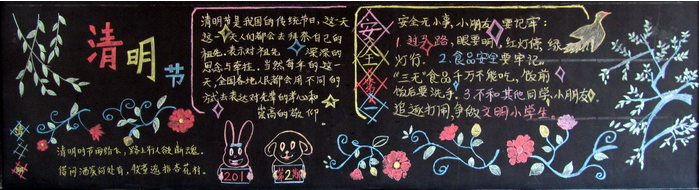 清明节
清明节是我国的传统节日,这一天
这一天人们都会去拜祭自己的
祖先,表示对祖先 深深的
思念与牵挂。当然每年的这一
天,全国各地人民都会用不同的
方式去表达对先辈的孝心和
崇高的敬仰
清明时节雨纷纷,路上行人欲断魂。
借问酒家何处有,牧童遥指杏花村。
201 第2期
安全第一
安全无小事,小朋友 要记牢:
1.过马路,眼要明,红灯停,绿
灯行。 2.食品安全要牢记,
“三无”食品千万不能吃,饭前
饭后要洗手。3.不和其他同学、小朋友
追逐打闹,争做文明小学生。